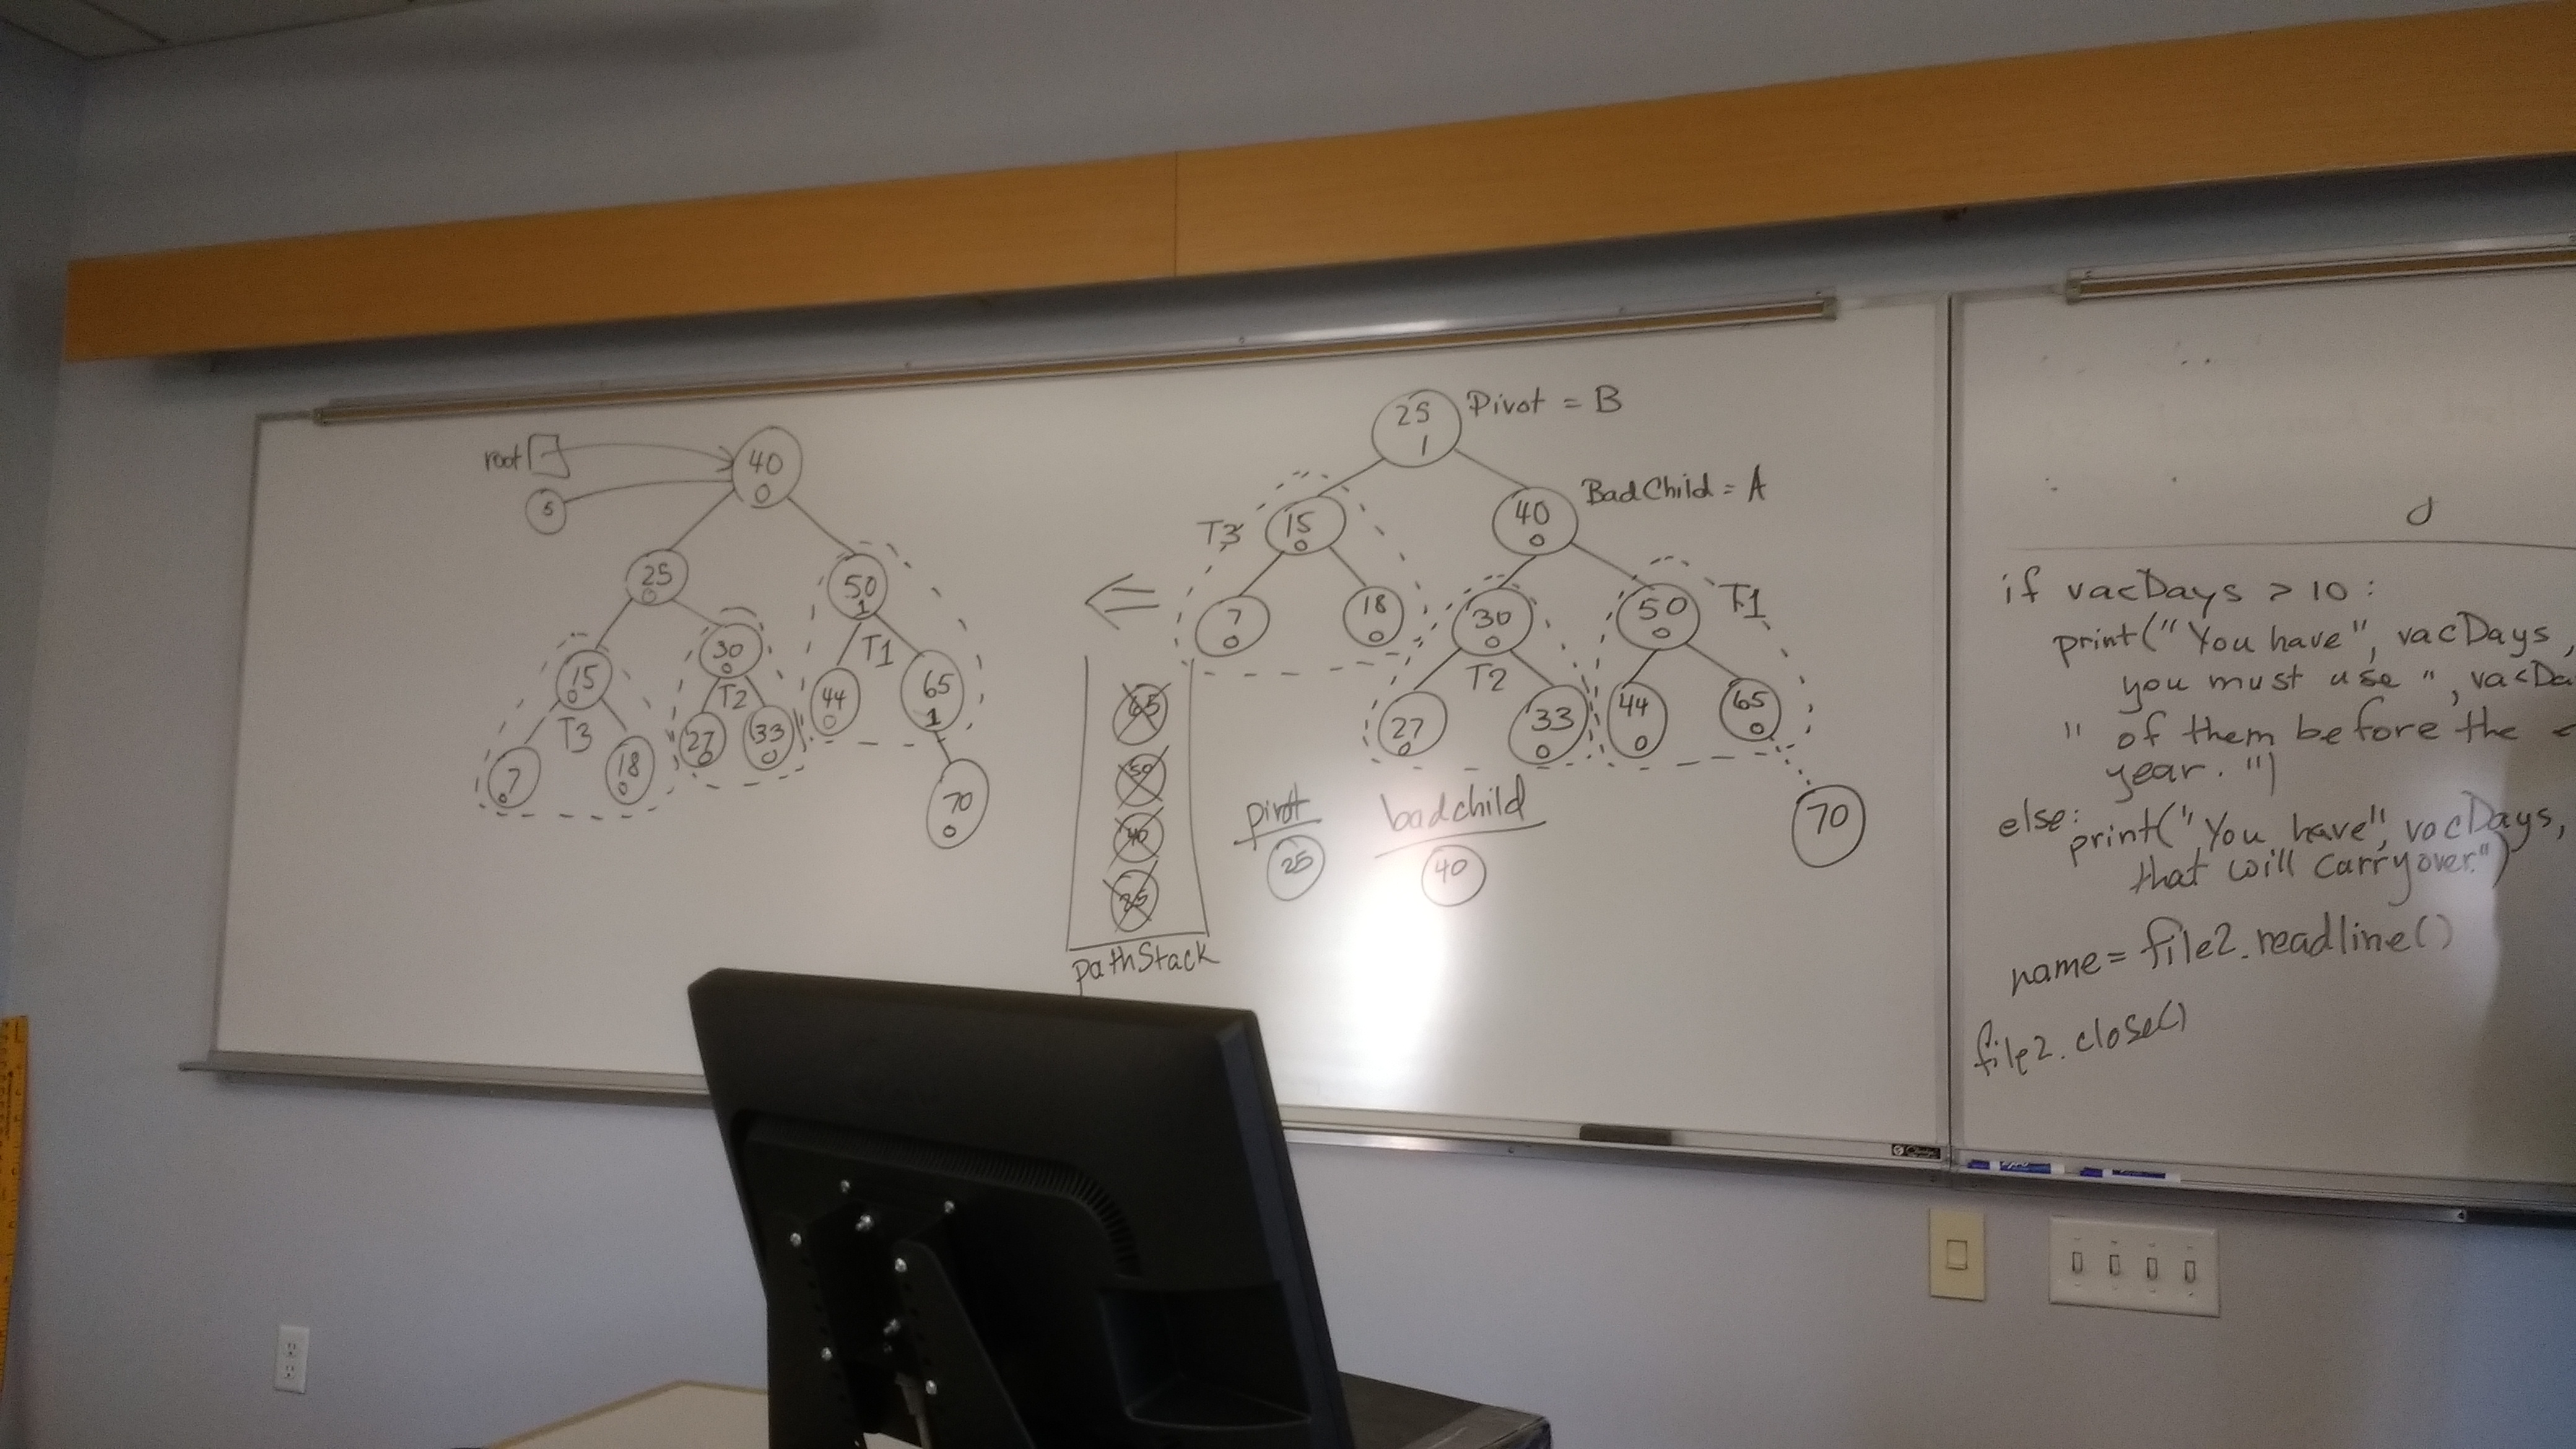 root
5
40
0
25
0
50
1
15
0
30
0
T1
44
0
65
1
T3
T2
7
0
18
0
27
0
33
0
70
0
25
1
Pivot = B
40
0
BadChild = A
T3
15
0
7
0
18
0
30
0
50
0
T1
T2
27
0
33
0
44
0
65
0
70
65
50
40
25
PathStack
pivot
25
badchild
40
if vacDays > 10 :
print("You have", vacDays,
you must use ", vacDa
" of them before the
year. ")
else:
print("You have", vacDays,
that will carryover.")
name = file2.readline()
file2.close()